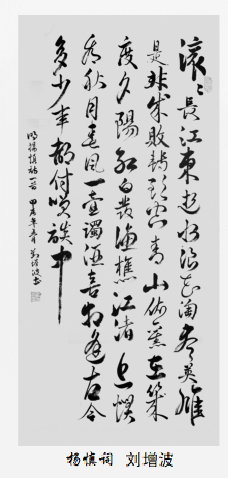 滚滚长江东逝水浪花淘尽英雄
是非成败转头空青山依旧在几
度夕阳红白发渔樵江渚上惯
看秋月春风一壶浊酒喜相逢古今
多少事都付笑谈中
明杨慎词一首 甲午年 刘增波书
杨慎词 刘增波